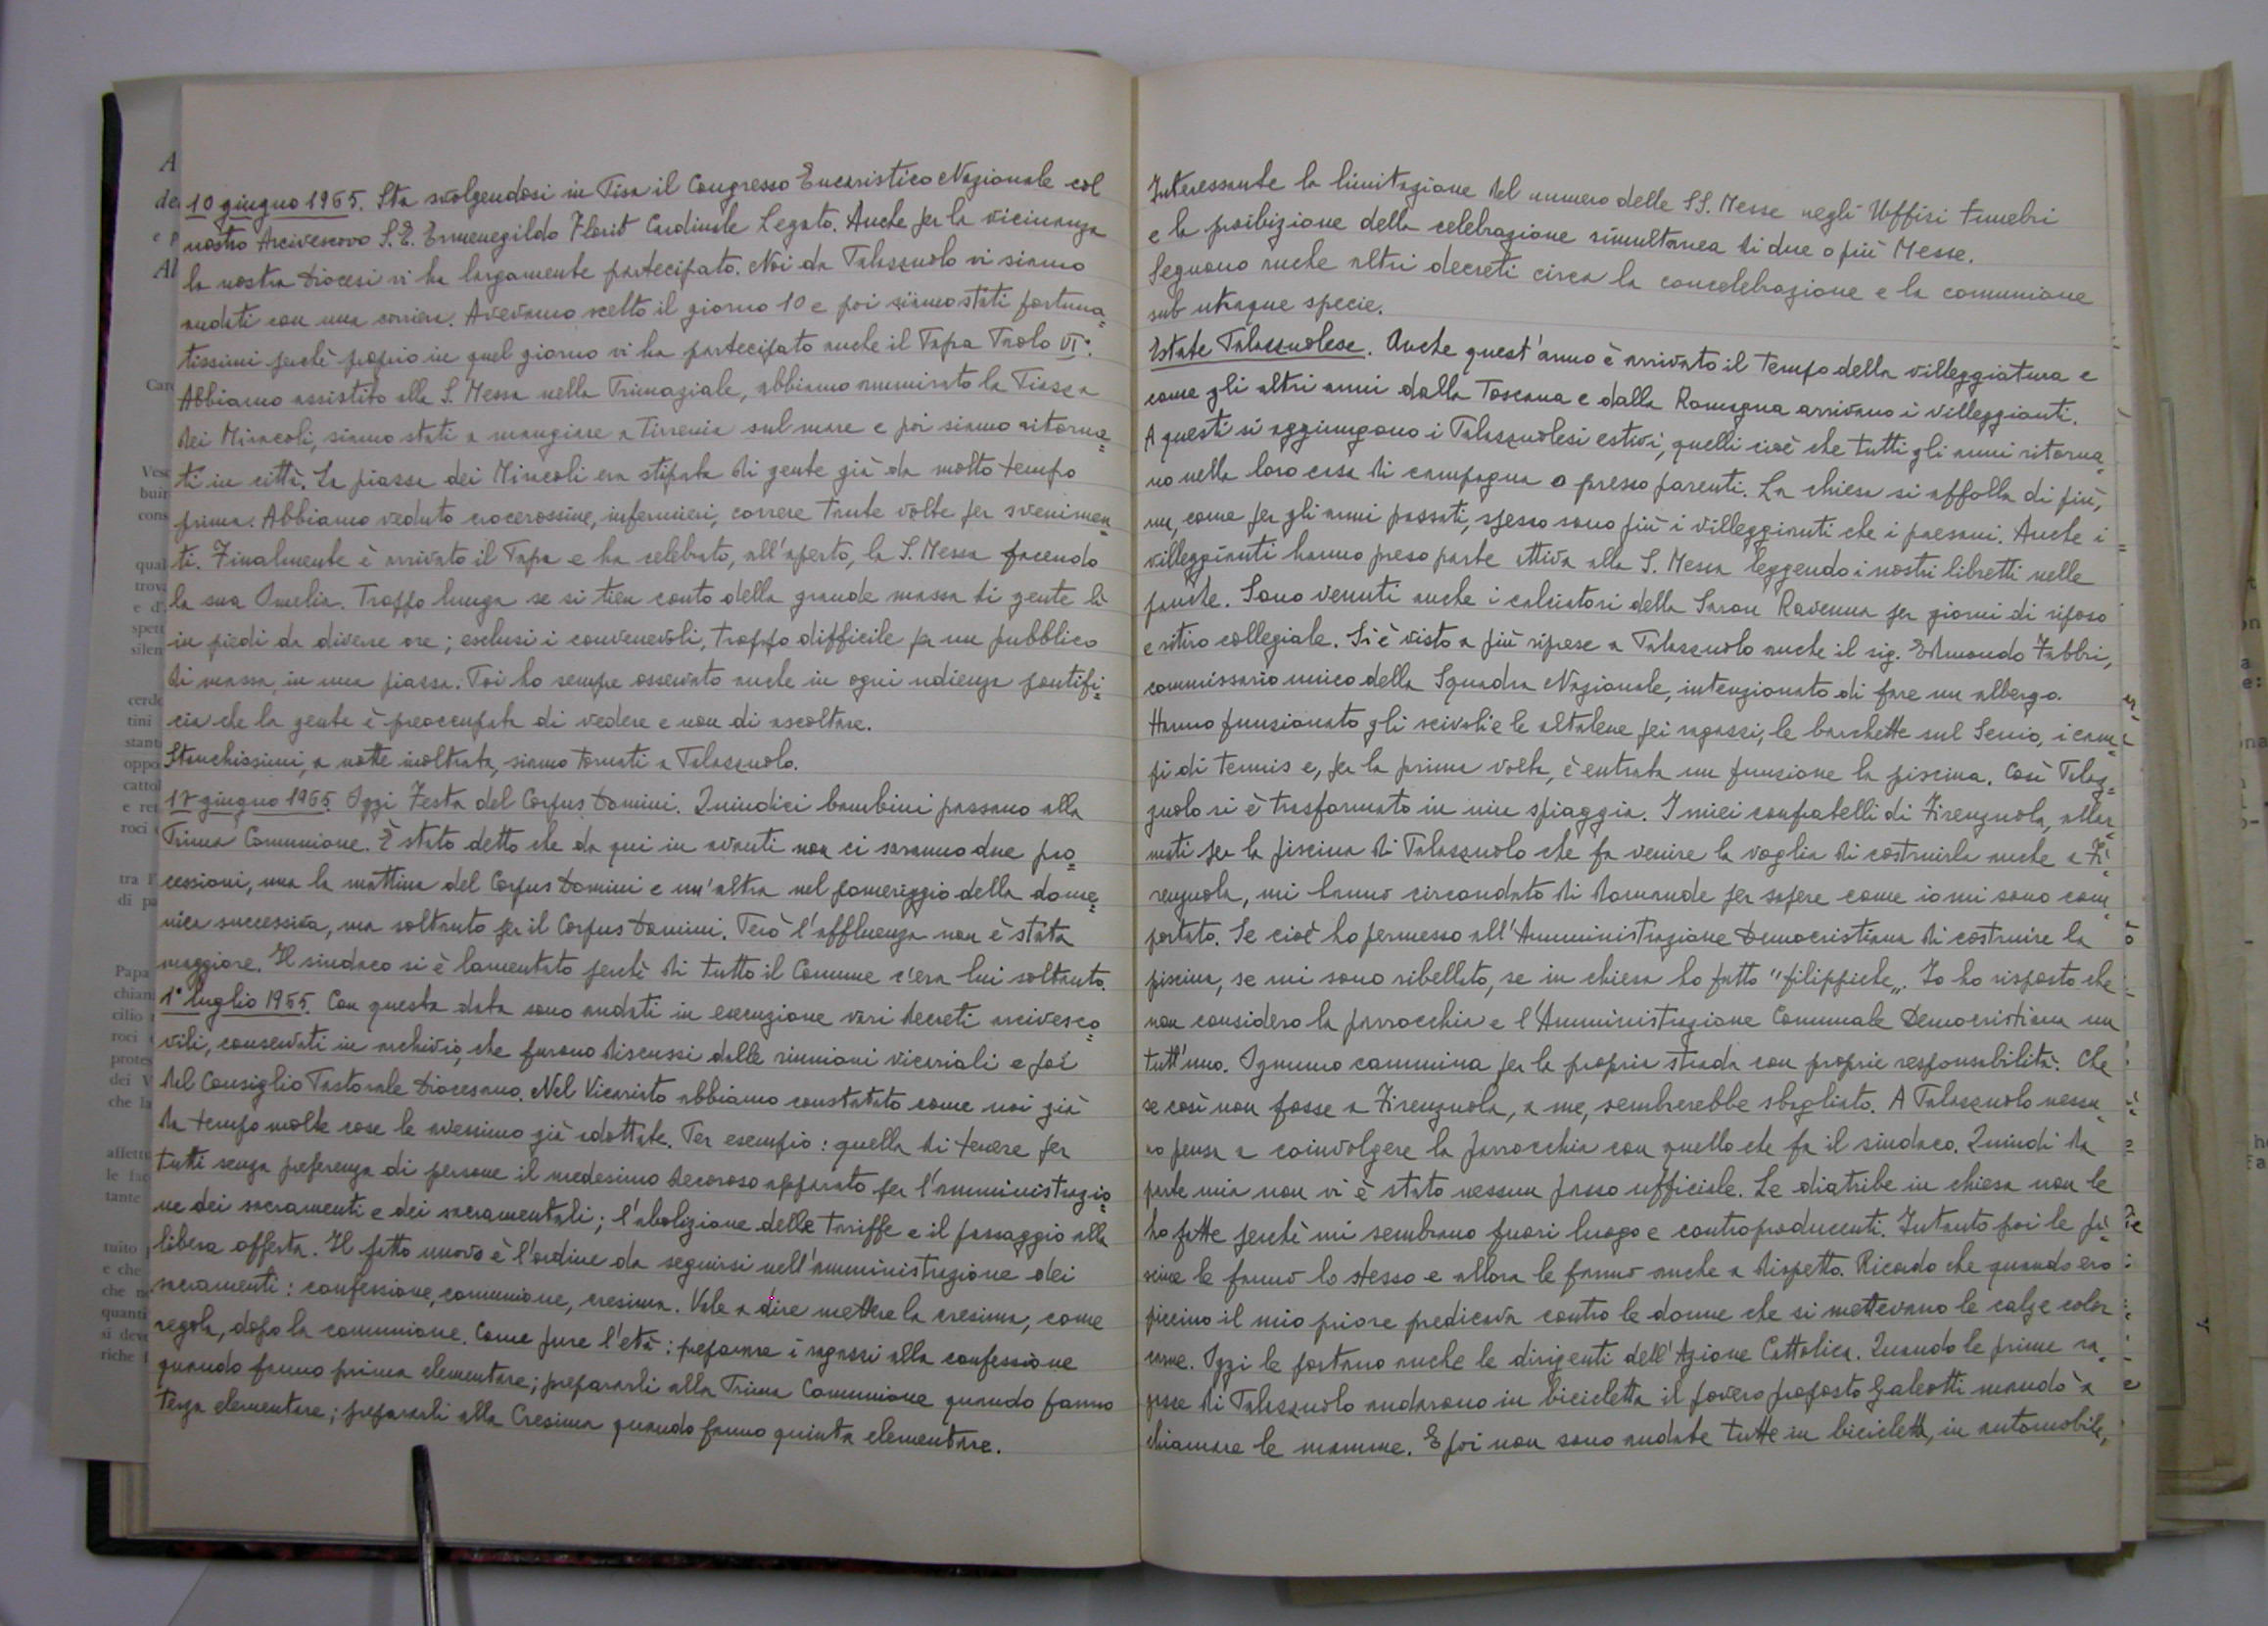 10 giugno 1965. Sta svolgendosi in Pisa il Congresso Eucaristico Nazionale col
nostro Arcivescovo S.E. Ermenegildo Florit Cardinale Legato. Anche per la vicinanza
la nostra Diocesi vi ha largamente partecipato. Noi da Palazzuolo vi siamo
andati con una corriera. Avevamo scelto il giorno 10 e poi siamo stati fortuna=
tissimi perchè proprio in quel giorno vi ha partecipato anche il Papa Paolo VI°.
Abbiamo assistito alla S. Messa nella Primaziale, abbiamo ammirato la Piazza
dei Miracoli, siamo stati a mangiare a Tirrenia sul mare e poi siamo ritorna=
ti in città. La piazza dei Miracoli era stipata di gente già da molto tempo
prima. Abbiamo veduto crocerossine, infermieri, correre tante volte per svenimen=
ti. Finalmente è arrivato il Papa e ha celebrato, all'aperto, la S. Messa facendo
la sua Omelia. Troppo lunga se si tien conto della grande massa di gente lì
in piedi da diverse ore; esclusi i convenevoli, troppo difficile per un pubblico
di massa, in una piazza. Poi ho sempre osservato anche in ogni udienza pontifi=
cia che la gente è preoccupata di vedere e non di ascoltare.
Stanchissimi, a notte inoltrata, siamo tornati a Palazzuolo.
17 giugno 1965. Oggi Festa del Corpus Domini. Quindici bambini passano alla
Prima Comunione. È stato detto che da qui in avanti non ci saranno due pro=
cessioni, una la mattina del Corpus Domini e un'altra nel pomeriggio della dome=
nica successiva, ma soltanto per il Corpus Domini. Però l'affluenza non è stata
maggiore. Il sindaco si è lamentato perchè di tutto il Comune c'era lui soltanto.
1° luglio 1965. Con questa data sono andati in esecuzione vari decreti arcivesco=
vili, conservati in archivio, che furono discussi dalle riunioni vicariali e poi
dal Consiglio Pastorale Diocesano. Nel Vicariato abbiamo constatato come noi già
da tempo molte cose le avessimo già adottate. Per esempio: quella di tenere per
tutti senza preferenza di persone il medesimo decoroso apparato per l'amministrazio=
ne dei sacramenti e dei sacramentali; l'abolizione delle tariffe e il passaggio alla
libera offerta. Il fatto nuovo è l'ordine da seguirsi nell'amministrazione dei
sacramenti: confessione, comunione, cresima. Vale a dire mettere la cresima, come
regola, dopo la comunione. Come pure l'età: preparare i ragazzi alla confessione
quando fanno prima elementare; prepararli alla Prima Comunione quando fanno
terza elementare; prepararli alla Cresima quando fanno quinta elementare.
Interessante la limitazione del numero delle SS. Messe negli Uffizi funebri
e la proibizione della celebrazione simultanea di due o più Messe.
Seguono anche altri decreti circa la concelebrazione e la comunione
sub utraque specie.
Estate Palazzuolese. Anche quest'anno è arrivato il tempo della villeggiatura e
come gli altri anni dalla Toscana e dalla Romagna arrivano i villeggianti.
A questi si aggiungono i Palazzuolesi estivi, quelli cioè che tutti gli anni ritorna=
no nella loro casa di campagna o presso parenti. La chiesa si affolla di più,
ma, come per gli anni passati, spesso sono più i villeggianti che i paesani. Anche i
villeggianti hanno preso parte attiva alla S. Messa leggendo i nostri libretti nelle
panche. Sono venuti anche i calciatori della Sarom Ravenna per giorni di riposo
e ritiro collegiale. Si è visto a più riprese a Palazzuolo anche il sig. Edmondo Fabbri,
commissario unico della Squadra Nazionale, intenzionato di fare un albergo.
Hanno funzionato gli scivoli e le altalene pei ragazzi, le barchette sul Senio, i cam=
pi di tennis e, per la prima volta, è entrata un funzione la piscina. Così Palaz=
zuolo si è trasformato in una spiaggia. I miei confratelli di Firenzuola, allar=
mati per la piscina di Palazzuolo che fa venire la voglia di costruirla anche a Fi=
renzuola, mi hanno circondato di domande per sapere come io mi sono com=
portato. Se cioè ho permesso all'Amministrazione Democristiana di costruire la
piscina, se mi sono ribellato, se in chiesa ho fatto "filippiche". Io ho risposto che
non considero la parrocchia e l'Amministrazione Comunale Democristiana un
tutt'uno. Ognuno cammina per la propria strada con proprie responsabilità. Che
se così non fosse a Firenzuola, a me, sembrerebbe sbagliato. A Palazzuolo nessu=
no pensa a coinvolgere la parrocchia con quello che fa il sindaco. Quindi da
parte mia non vi è stato nessun passo ufficiale. Le diatribe in chiesa non le
ho fatte perchè mi sembrano fuori luogo e controproducenti. Intanto poi le pi=
scine le fanno lo stesso e allora le fanno anche a dispetto. Ricordo che quando ero
piccino il mio priore predicava contro le donne che si mettevano le calze color
carne. Oggi le portano anche le dirigenti dell'Azione Cattolica. Quando le prime ra=
gazze di Palazzuolo andarono in bicicletta il povero proposto Galeotti mandò a
chiamare le mamme. E poi non sono andate tutte in bicicletta, in automobile,